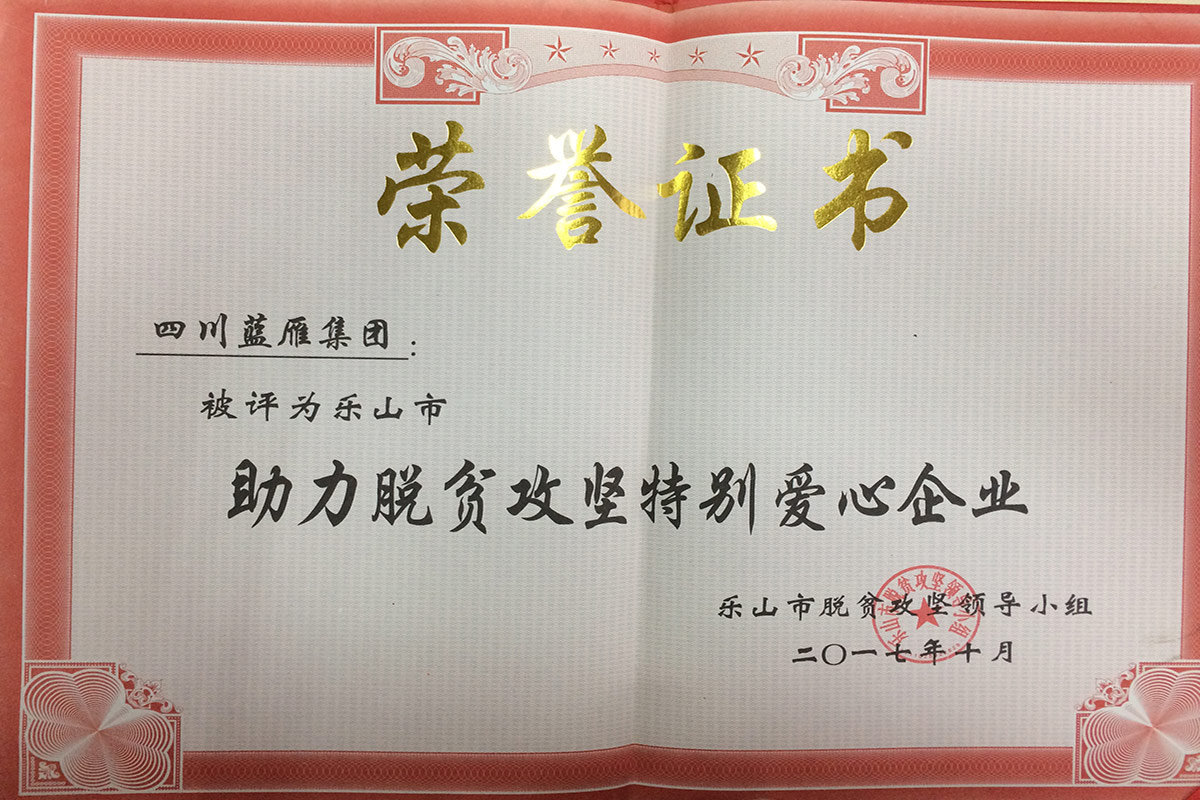 荣誉证书
四川蓝雁集团：
被评为乐山市
助力脱贫攻坚特别爱心企业
乐山市脱贫攻坚领导小组
二〇一七年十月
乐山市脱贫攻坚领导小组